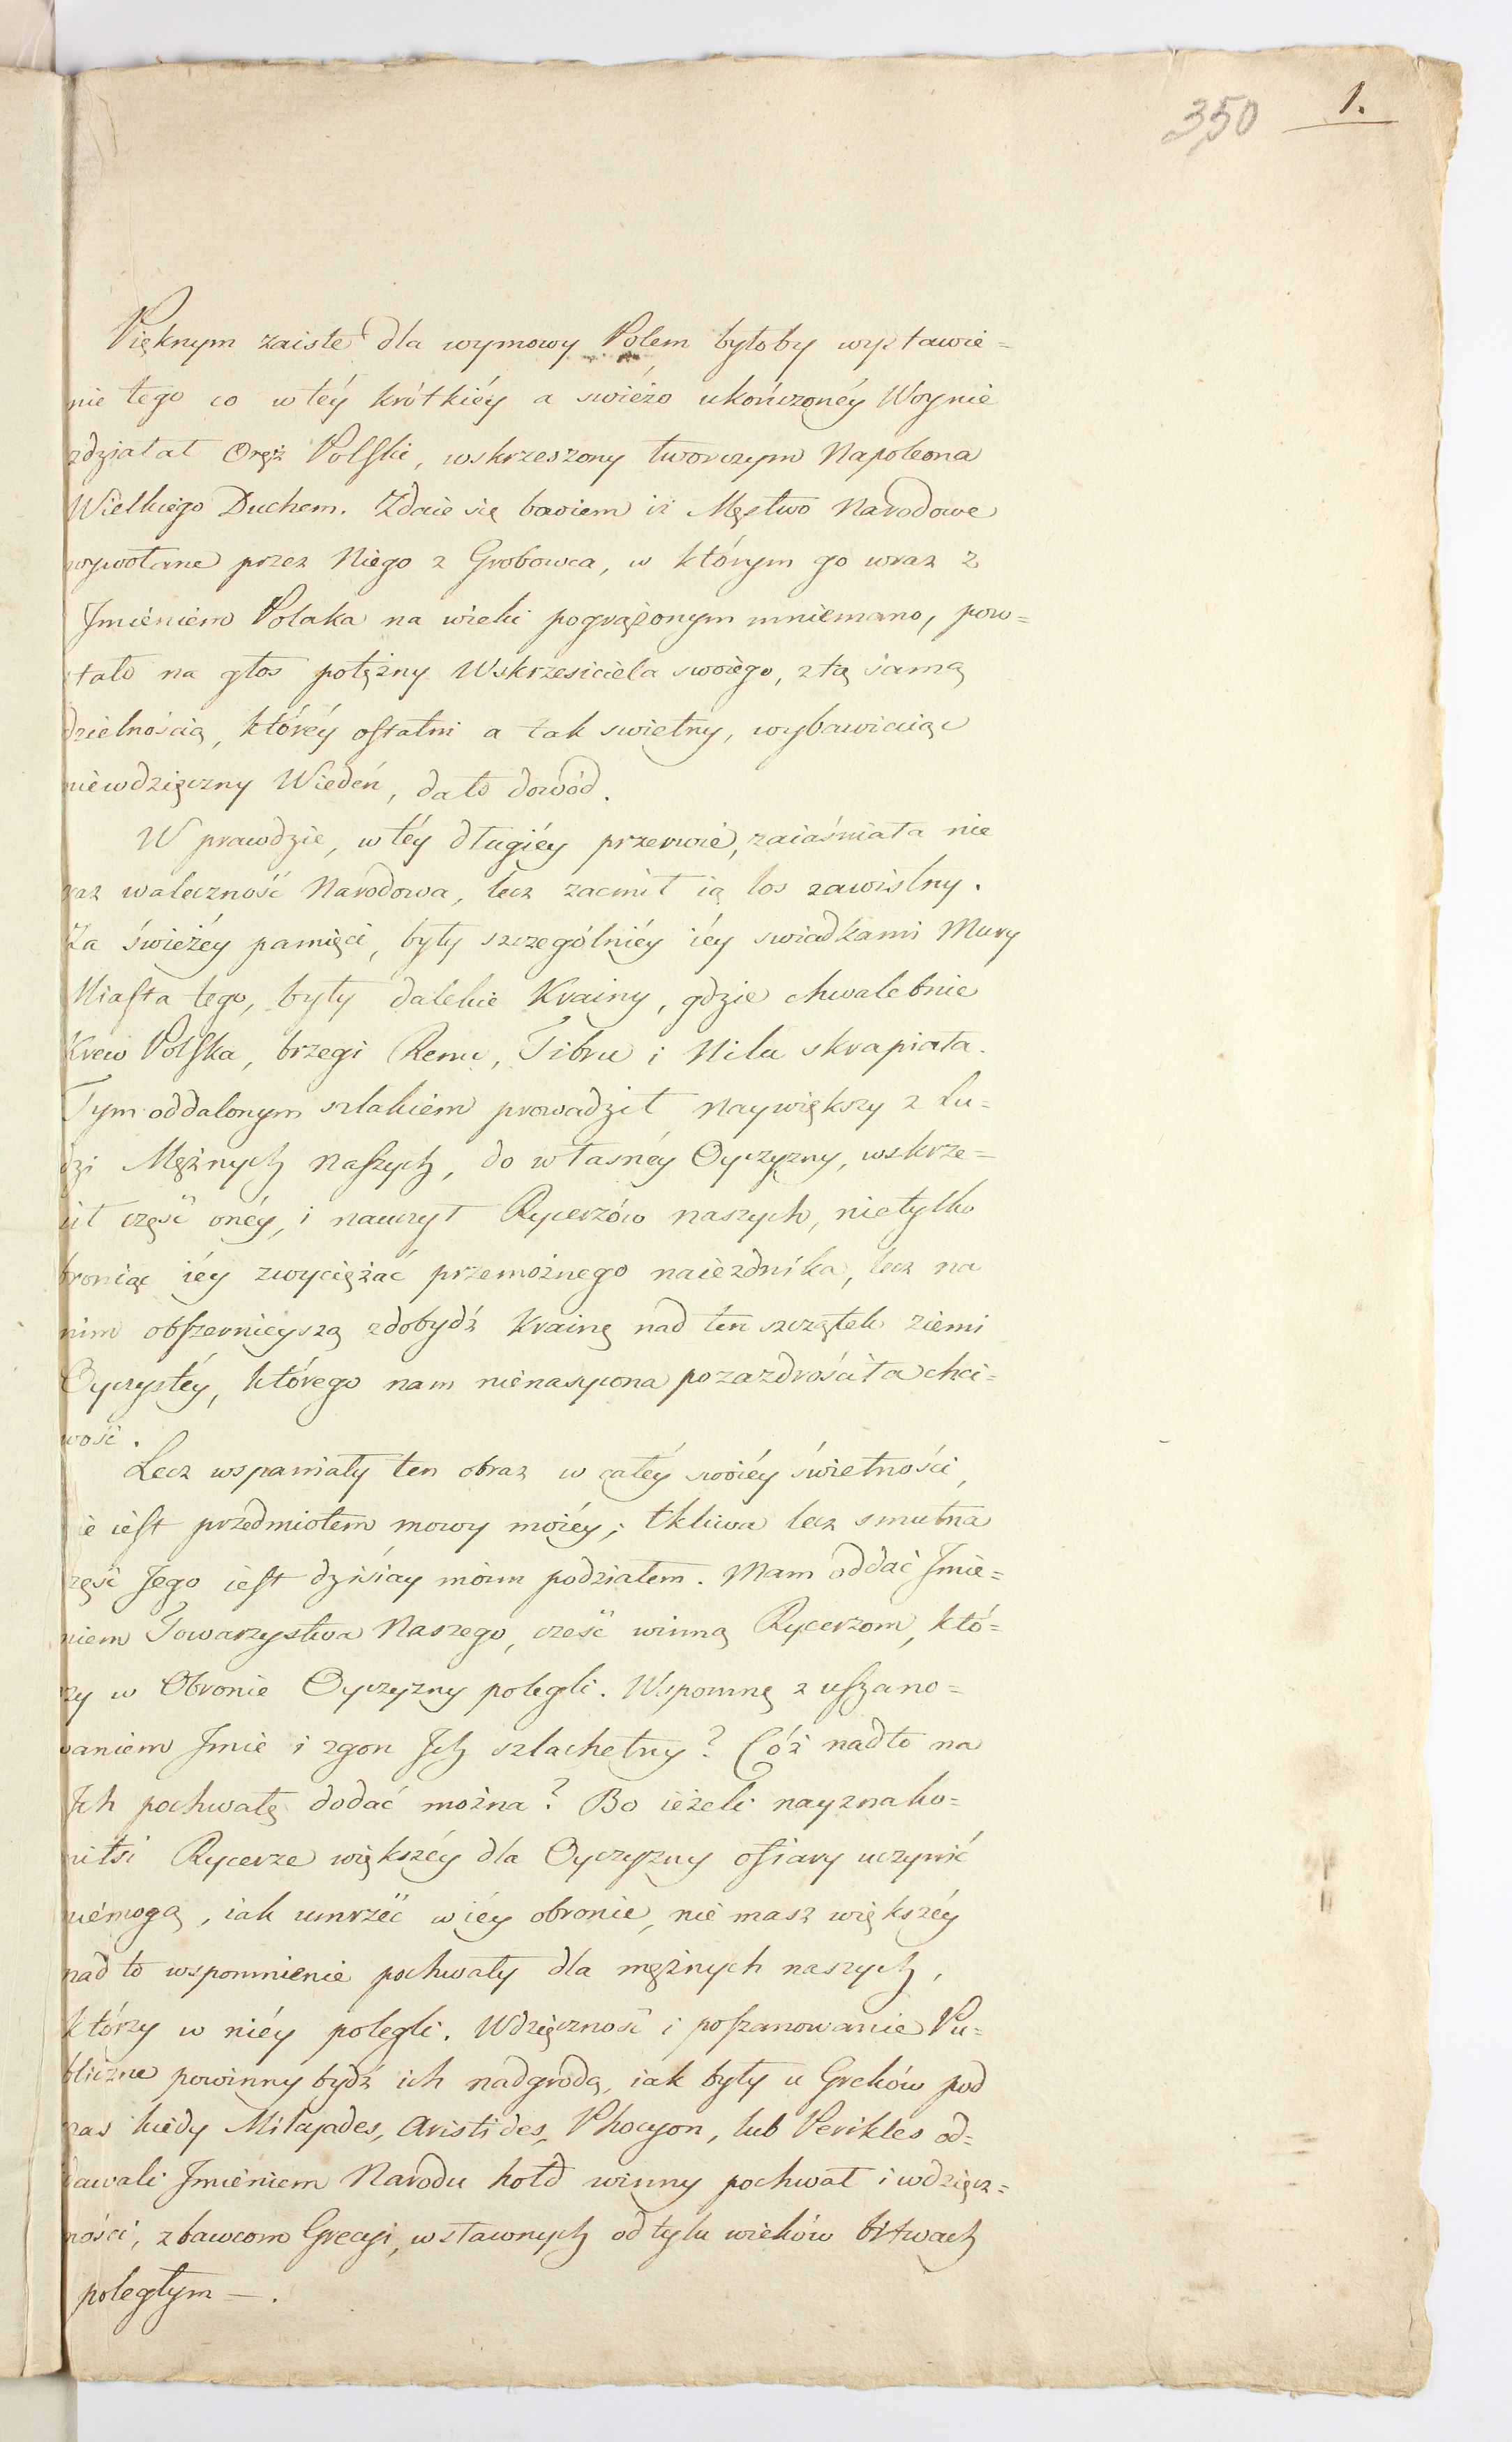 350 1.
Pięknym zaiste dla wymowy Polem byłoby wystawie=
nie tego co w téy krótkiéy a swiéżo ukończonéy Woynie
zdziałał Oręż Polski, wskrzeszony tworczym Napoleona
Wielkiego Duchem. Zdaie się bowiem iż Męstwo Narodowe
wywołane przez Niego z Grobowca, w którym go wraz z
Jmieniem Polaka na wieki pogrążonym mniemano, pow=
stało na głos potężny Wskrzesiciela swoiego, z tą samą
dzielnością, któréy ostatni a tak swietny, wybawiaiąc
niewdzięczny Wiedeń, dało dowód.
W prawdzie, w téy długiéy przerwie, zaiaśniała nie
raz waleczność Narodowa, lecz zacmił ią los zawistny.
Za świeżéy pamięci, były szczególniéy iéy swiadkami Mury
Miasta tego, były dalekie Krainy, gdzie chwalebnie
Krew Polska, brzegi Renu, Tibru i Nilu skrapiała.
Tym oddalonym szlakiem prowadził Naywiększy z Lu=
dzi Mężnych Naszych, do własnéy Oyczyzny, wskrze=
sił część onéy, i nauczył Rycerzów naszych, nietylko
broniąc iéy zwyciężać przemożnego naiezdnika, lecz na
nim obszernieyszą zdobydź Krainę nad ten szczątek ziemi
Oyczystéy, którego nam nienasycona pozazdrościła chci=
wość.
Lecz wspaniały ten obraz w całéy swoiéy świetności,
nie iest przedmiotem mowy moiéy; tkliwa lecz smutna
część Jego iest dzisiay moim podziałem. Mam oddać Jmie=
niem Towarzystwa Naszego, cześć winną Rycerzom, któ=
rzy w Obronie Oyczyzny polegli. Wspomnę z uszano=
waniem Jmie i zgon Jch szlachetny? Cóż nadto na
Jch pochwałę dodać można? Bo ieżeli nayznako=
mitsi Rycerze większéy dla Oyczyzny ofiary uczynić
niemogą, iak umrzeć w iéy obronie, nie masz większéy
nad to wspomnienie pochwały dla mężnych naszych,
którzy w niéy polegli. Wdzięczność i poszanowanie Pu=
bliczne powinny bydź ich nadgrodą, iak były u Greków pod
czas kiedy Milcyades, Aristides, Phocyon, lub Perikles od=
dawali Jmieniem Narodu hołd winny pochwał i wdzięcz=
ności, zbawcom Grecyi, w sławnych od tylu wieków bitwach
poległym —.